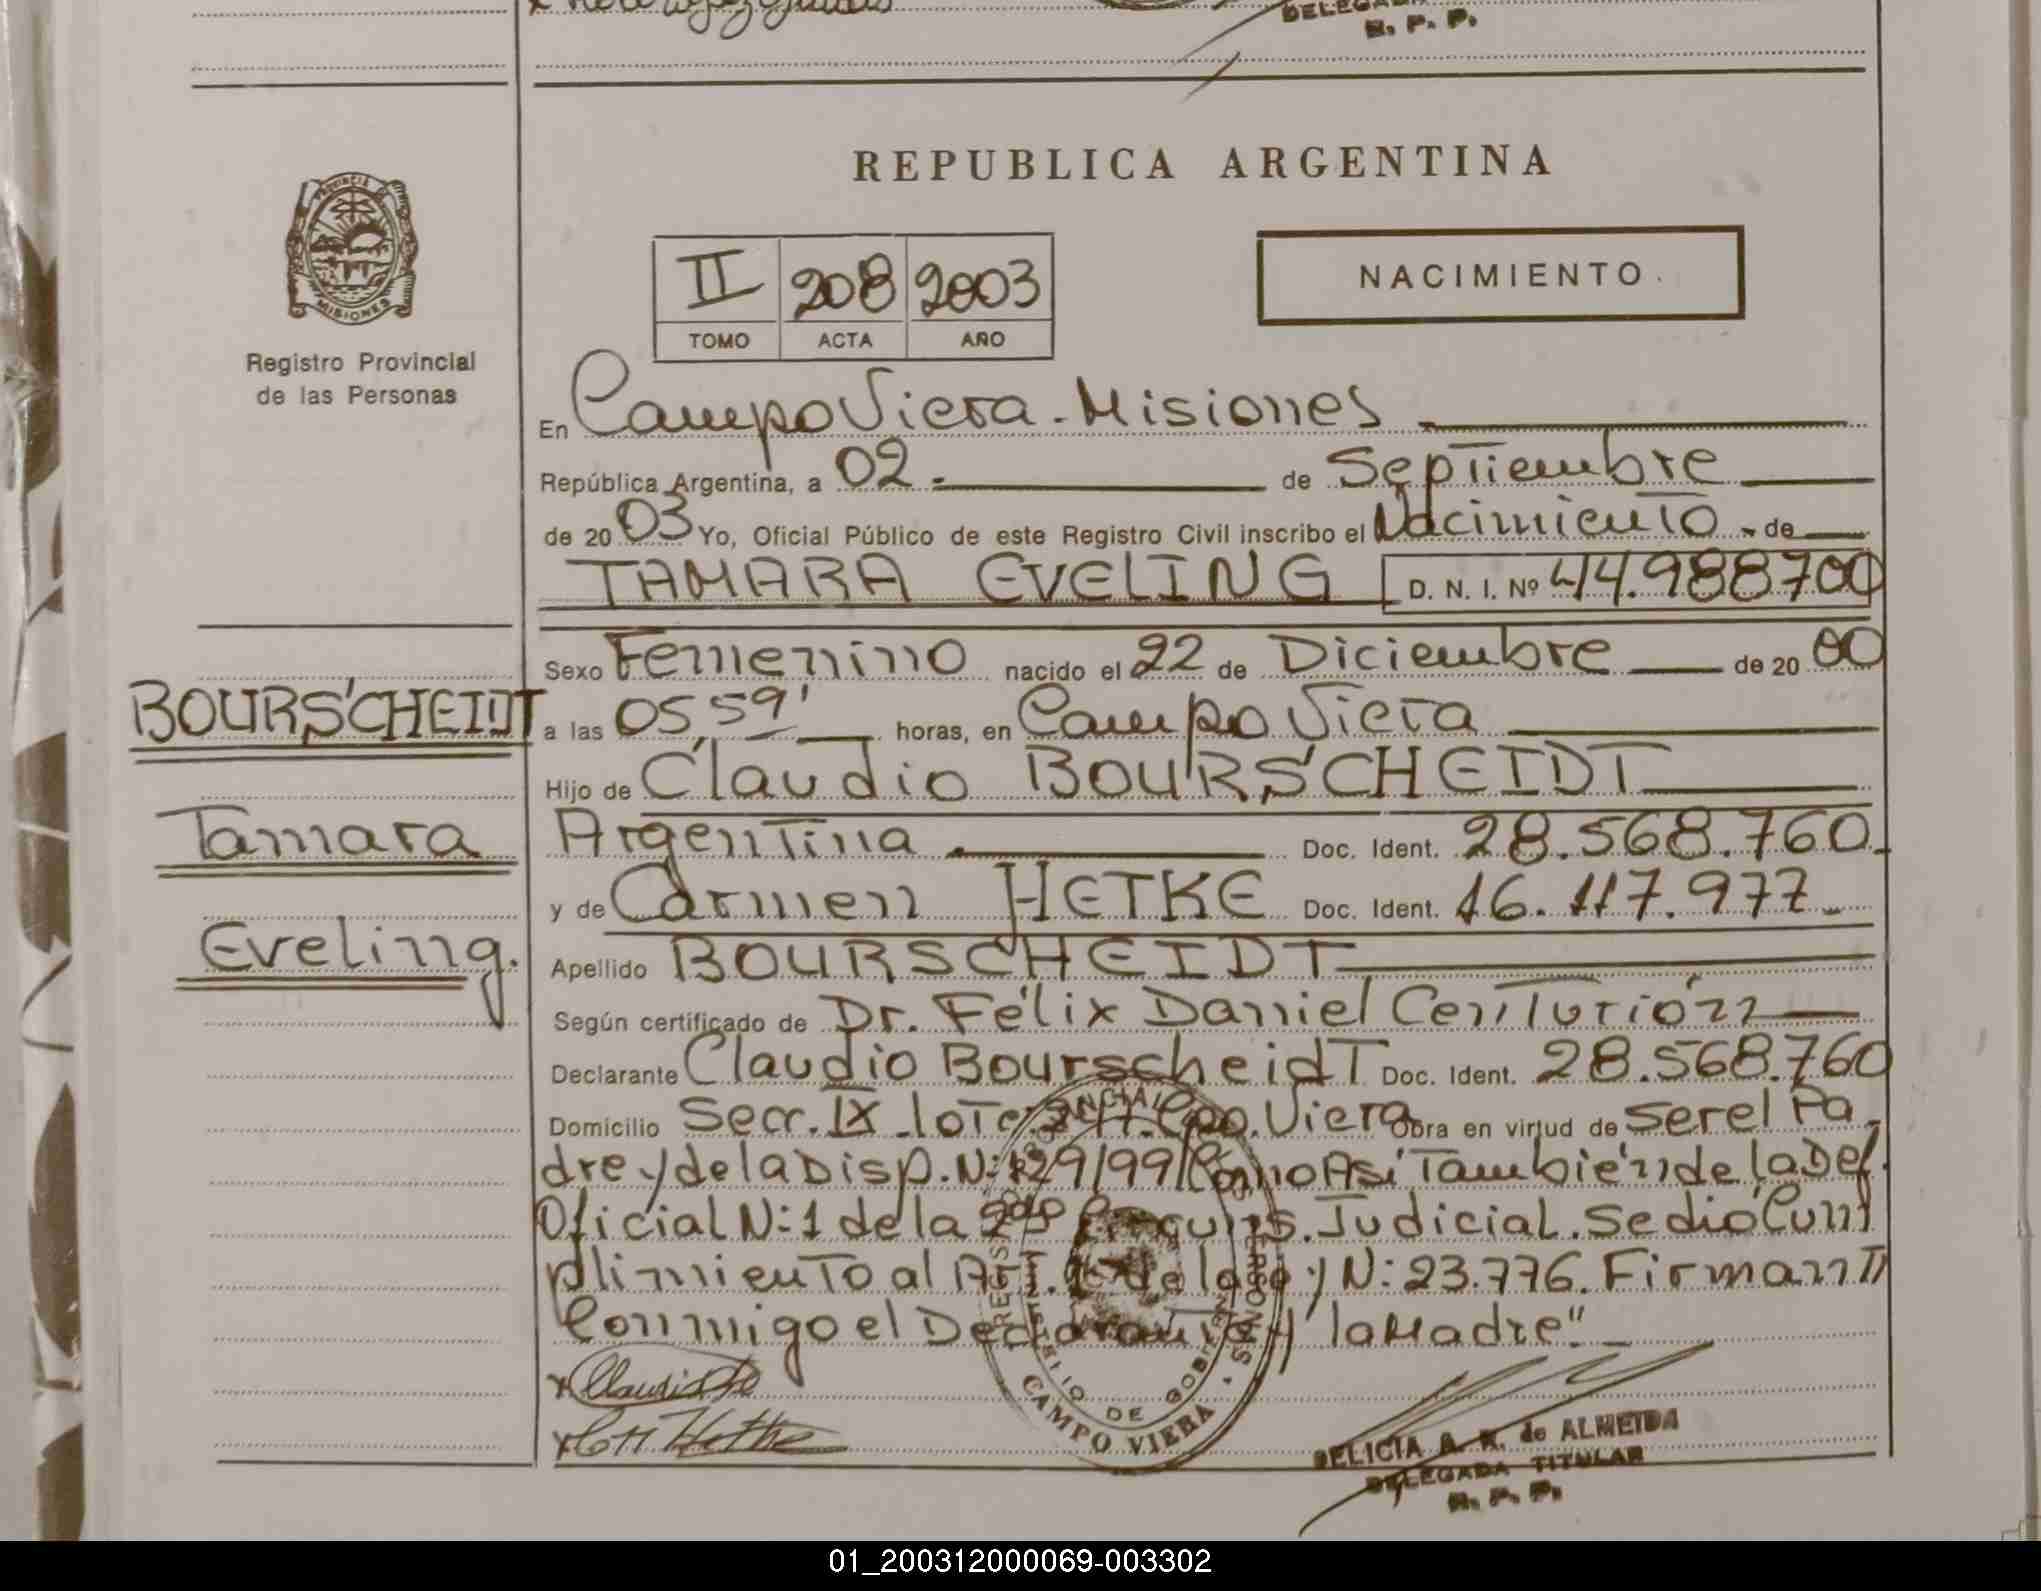 DELEGADA
R. P. P.
PROVINCIA DE
MISIONES
Registro Provincial
de las Personas
REPUBLICA ARGENTINA
II 208 2003
TOMO ACTA AÑO
NACIMIENTO
En Campo Viera - Misiones
República Argentina, a 02 de Septiembre
de 2003 Yo, Oficial Público de este Registro Civil inscribo el Nacimiento - de
TAMARA EVELING D. N. I. Nº 44.988700
Sexo Femenino nacido el 22 de Diciembre de 2000
BOURS'CHEIDT
a las 05,59' horas, en Campo Viera
Hijo de Claudio BOURS'CHEIDT
Tamara
Argentina Doc. Ident. 28.568.760.
y de Carmen HETKE Doc. Ident. 16.117.977
Eveling.
Apellido BOURSCHEIDT
Según certificado de Dr. Félix Daniel Centurión
Declarante Claudio Bourscheidt Doc. Ident. 28.568.760
Domicilio Secc. IX - lote Cpo. Viera Obra en virtud de ser el Pa-
dre y de la Disp. N: 129/99 / Como Así También de la Def.
Oficial N: 1 de la 2da Circuns. Judicial. Se dió Cum
plimiento al Art. de la Ley N: 23.776. Firman
Conmigo el Declarante y "la Madre"
REGISTRO PROVINCIAL DE LAS PERSONAS
MINISTERIO DE GOBIERNO
CAMPO VIERA
DELICIA A. R. de ALMEIDA
DELEGADA TITULAR
R. P. P.
01_200312000069-003302